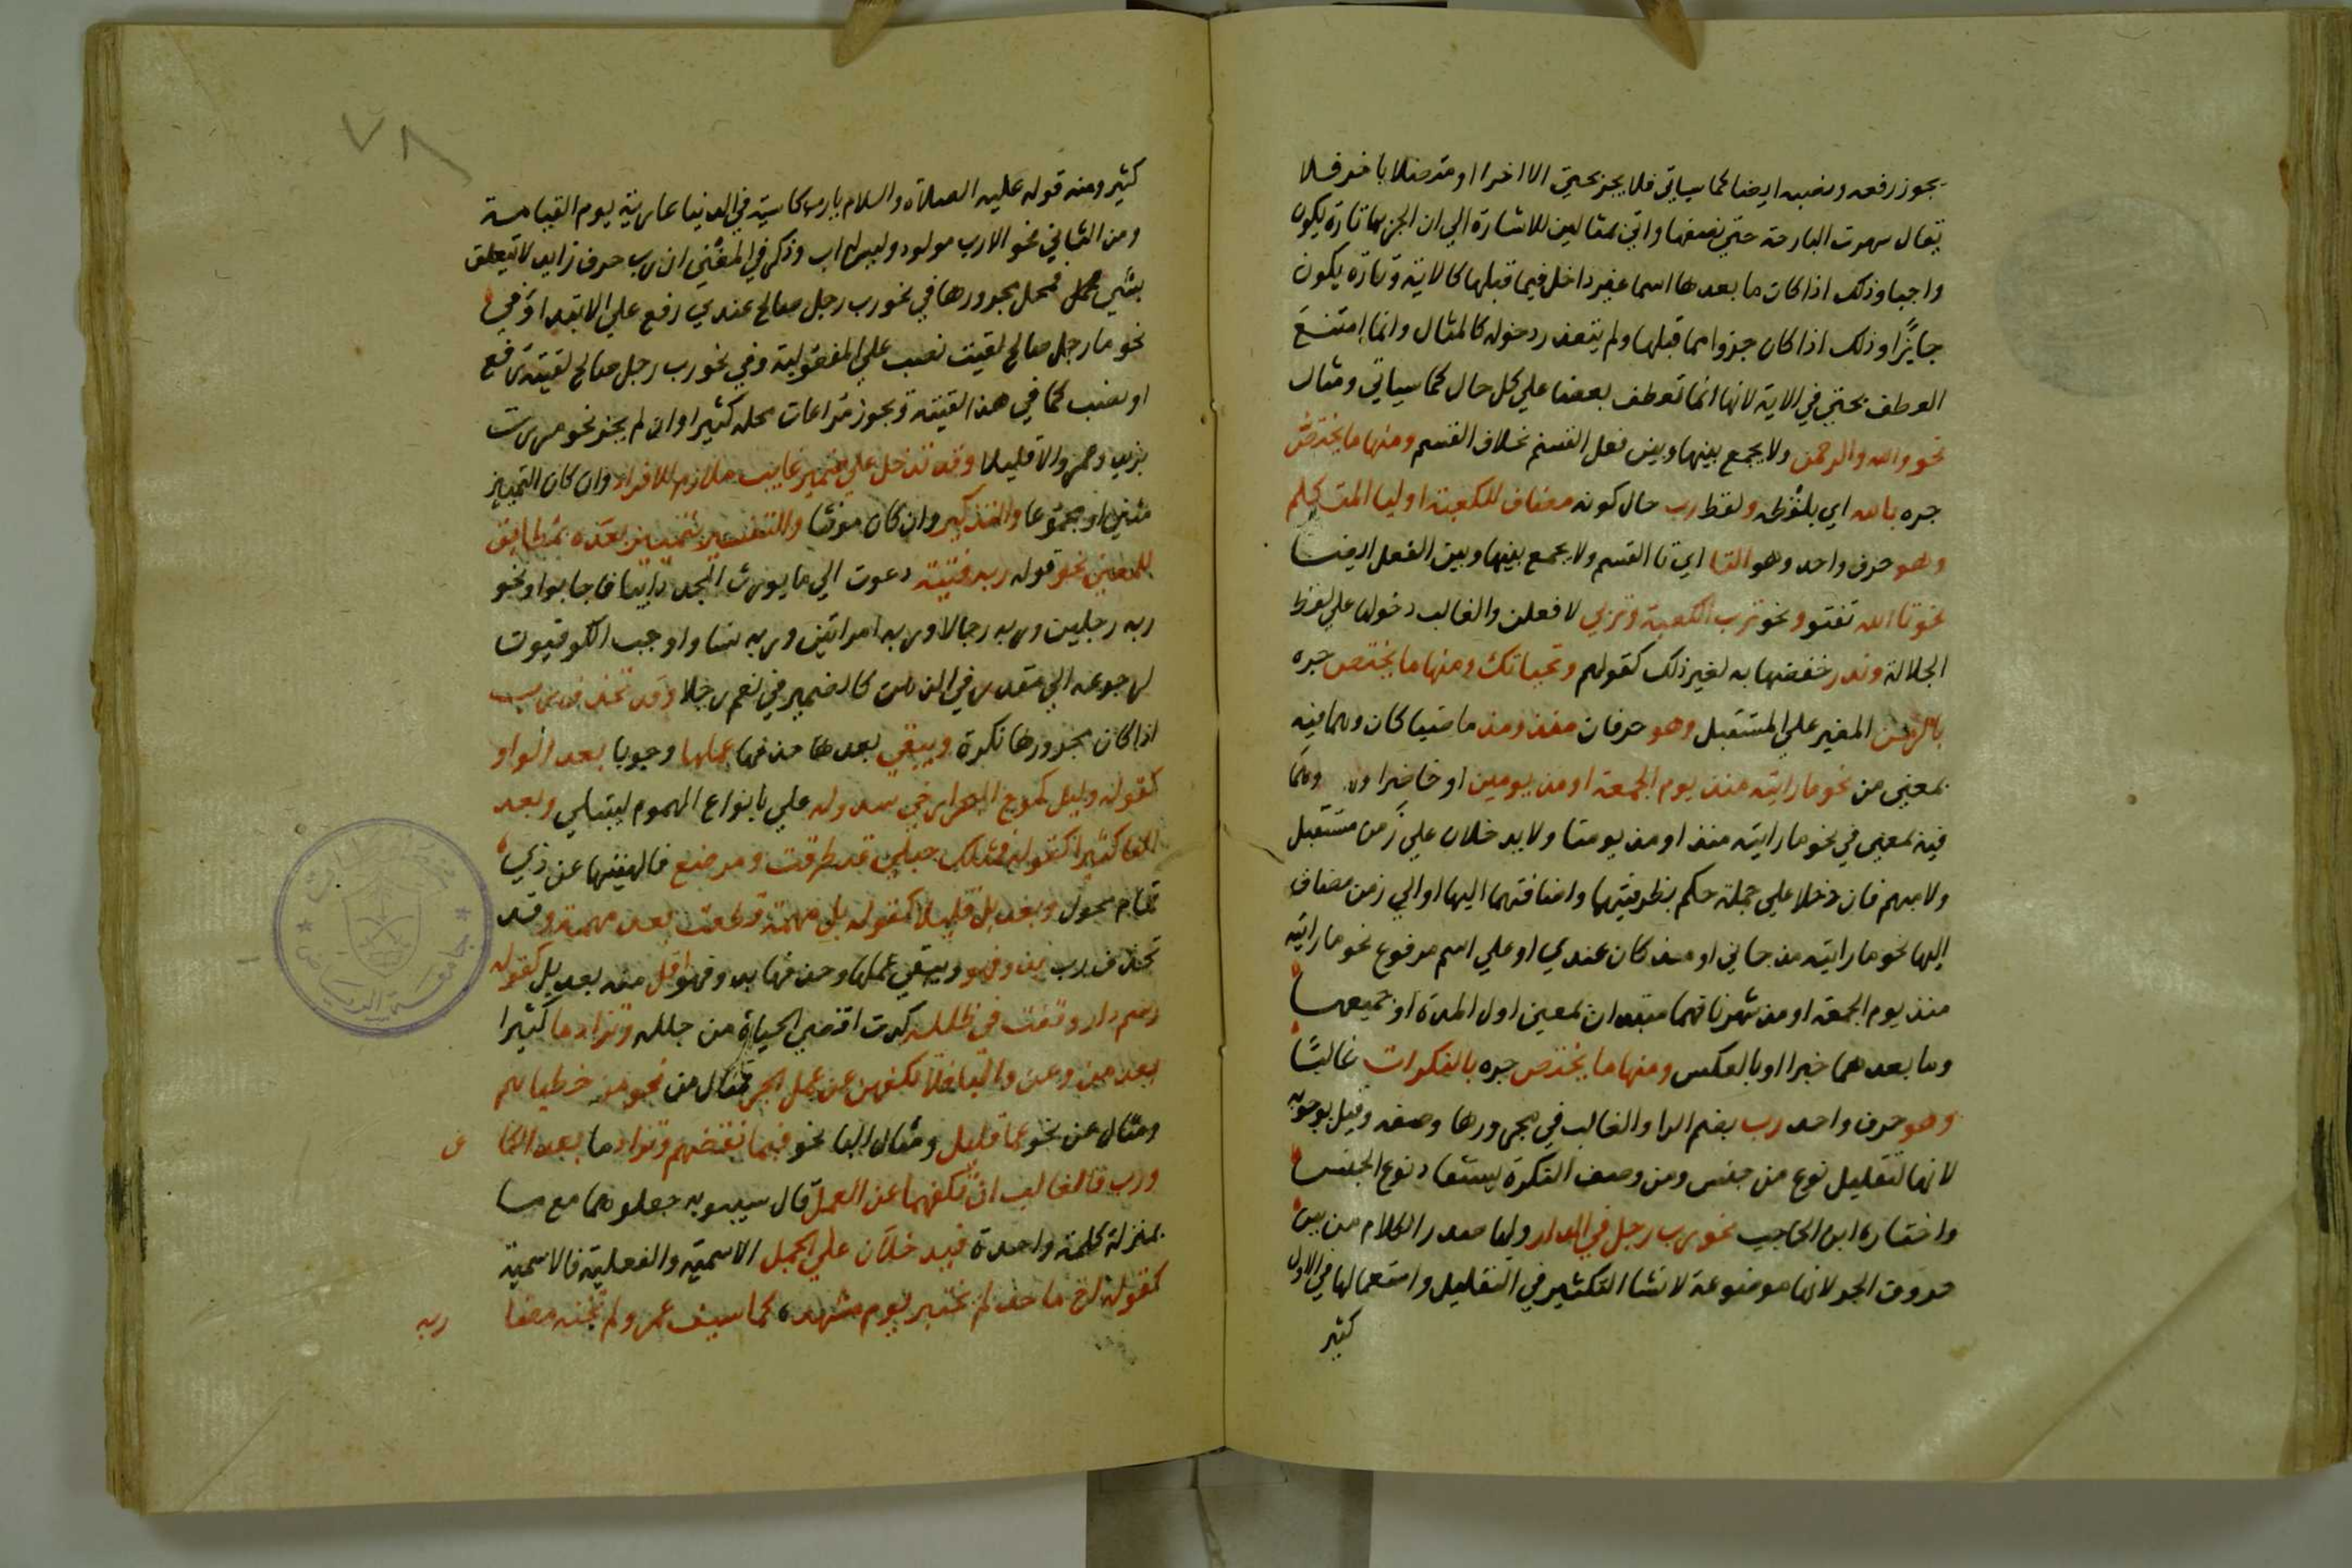 يجوز رفعه ونصبه ايضا كما سياتي فلا يجر بحتي الا اخرا او متصلا باخر فلا
يقال سهرت البارحة حتي نصفها واتي بمثالين للاشارة الي ان الجر بها تارة يكون
واجبا وذلك اذا كان ما بعدها اسما غير داخل فيما قبلها كالاية وتارة يكون
جايزًا وذلك اذا كان جزوا مما قبلها ولم يتعذر دخوله كالمثال وانما امتنع
العطف بحتي في الاية لانها انما تعطف بعضا علي كل حال كما سياتي ومثال
نحو والله والرحمن ولا يجمع بينها وبين فعل القسم بخلاف القسم ومنها ما يختص
جره بالله اي بلفظه ولفظ رب حال كونه مضاف للكعبة او ليا المتكلم
وهو حرف واحد وهو التا اي تا القسم ولا يجمع بينها وبين الفعل ايضا
نحو تا الله تفتو ونحو ترب الكعبة وتربي لافعلن والغالب دخولها علي لفظ
الجلالة وندر خفضها به لغير ذلك كقولهم وتحياتك ومنها ما يختص جره
بالزمن المغير علي المستقبل وهو حرفان منذ ومذ ماضيا كان وهما فيه
بمعني من نحو ما رايته منذ يوم الجمعة او مذ يومين او حاضرا وهما
فيه بمعني في نحو ما رايته منذ او مذ يومنا ولا يدخلان علي زمن مستقبل
ولا مبهم فان دخلا علي جملة حكم بظرفيتهما واضافتهما اليها او الي زمن مضاف
اليها نحو ما رايته مذ جاني او منذ كان عندي او علي اسم مرفوع نحو ما رايته
منذ يوم الجمعة او مذ شهرنا فهما مبتدان بمعني اول المدة او جميعها
وما بعدهما خبرا او بالعكس ومنها ما يختص جره بالنكرات غالبًا
وهو حرف واحد رب بضم الرا والغالب في مجرورها وصفه وقيل بوجوبه
لانها لتقليل نوع من جنس ومن وصف النكرة يستفاد نوع الجنس
واختاره ابن الحاجب نحو رب رجل في الدار ولها صدر الكلام من بين
حروف الجر لانها موضوعة لانشا التكثير في التقليل واستعمالها في الاول
كثير
٧٨
كثير ومنه قوله عليه الصلاة والسلام يا رب كاسية في الدنيا عارية يوم القيامة
ومن الثاني نحو الا رب مولود وليس له اب وذكر في المغني ان رب حرف زايد لا تتعلق
بشي فمحل مجرورها في نحو رب رجل صالح عندي رفع علي الابتدا وفي
نحو ما رجل صالح لقيت نصب علي المفعولية وفي نحو رب رجل صالح لقيته رفع
او نصب كما في هذا لقيته ويجوز مراعات محله كثيرا وان لم يجز نحو مررت
بزيد وعمروا الا قليلا وقد تدخل علي ضمير غايب ملازم للافراد وان كان التمييز
مثني او مجموعا والتذكير وان كان مونثا وللتفسير بتمييز بعده مطابق
للمعني نحو قوله ربه فتية دعوت الي ما يورث المجد دايبا فاجابوا ونحو
ربه رجلين وربه رجالا وربه امراتين وربه نسا واوجب الكوفيون
رجوعه الي مقدر في الذهن كالضمير في نعم رجلا وقد تحذف رب
اذا كان مجرورها نكرة ويبقي بعدها حذفها عملها وجوبا بعد الواو
كقوله وليل كموج البحر ارخي سدوله علي بانواع الهموم ليبتلي وبعد
الفا كثيرا كقوله فمثلك حبلي قد طرقت ومرضع فالهيتها عن ذي
تمام محول وبعد بل قليلا كقوله بل مهمة قطعت بعد مهمة وقد
تحذف رب بدونهم ويبقي عملها وحذفها بدونها اقل منه بعد بل كقوله
رسم دار وقفت في طلله كدت اقضي الحياة من جلله وتزاد ما كثيرا
بعد من وعن والبا فلا تكفهن عن عمل الجر مثال من نحو مما خطياهم
ومثال عن نحو عما قليل ومثال البا نحو فبما نقضهم وتزاد ما بعد الكاف
ورب فالغالب ان تكفهما عن العمل قال سيبويه جعلوهما مع ما
بمنزلة كلمة واحدة فيدخلان علي الجمل الاسمية والفعلية فالاسمية
كقوله اخ ماجد لم يخزني يوم مشهد كما سيف عمرو لم تخنه مضا ربه
جامعة الرياض